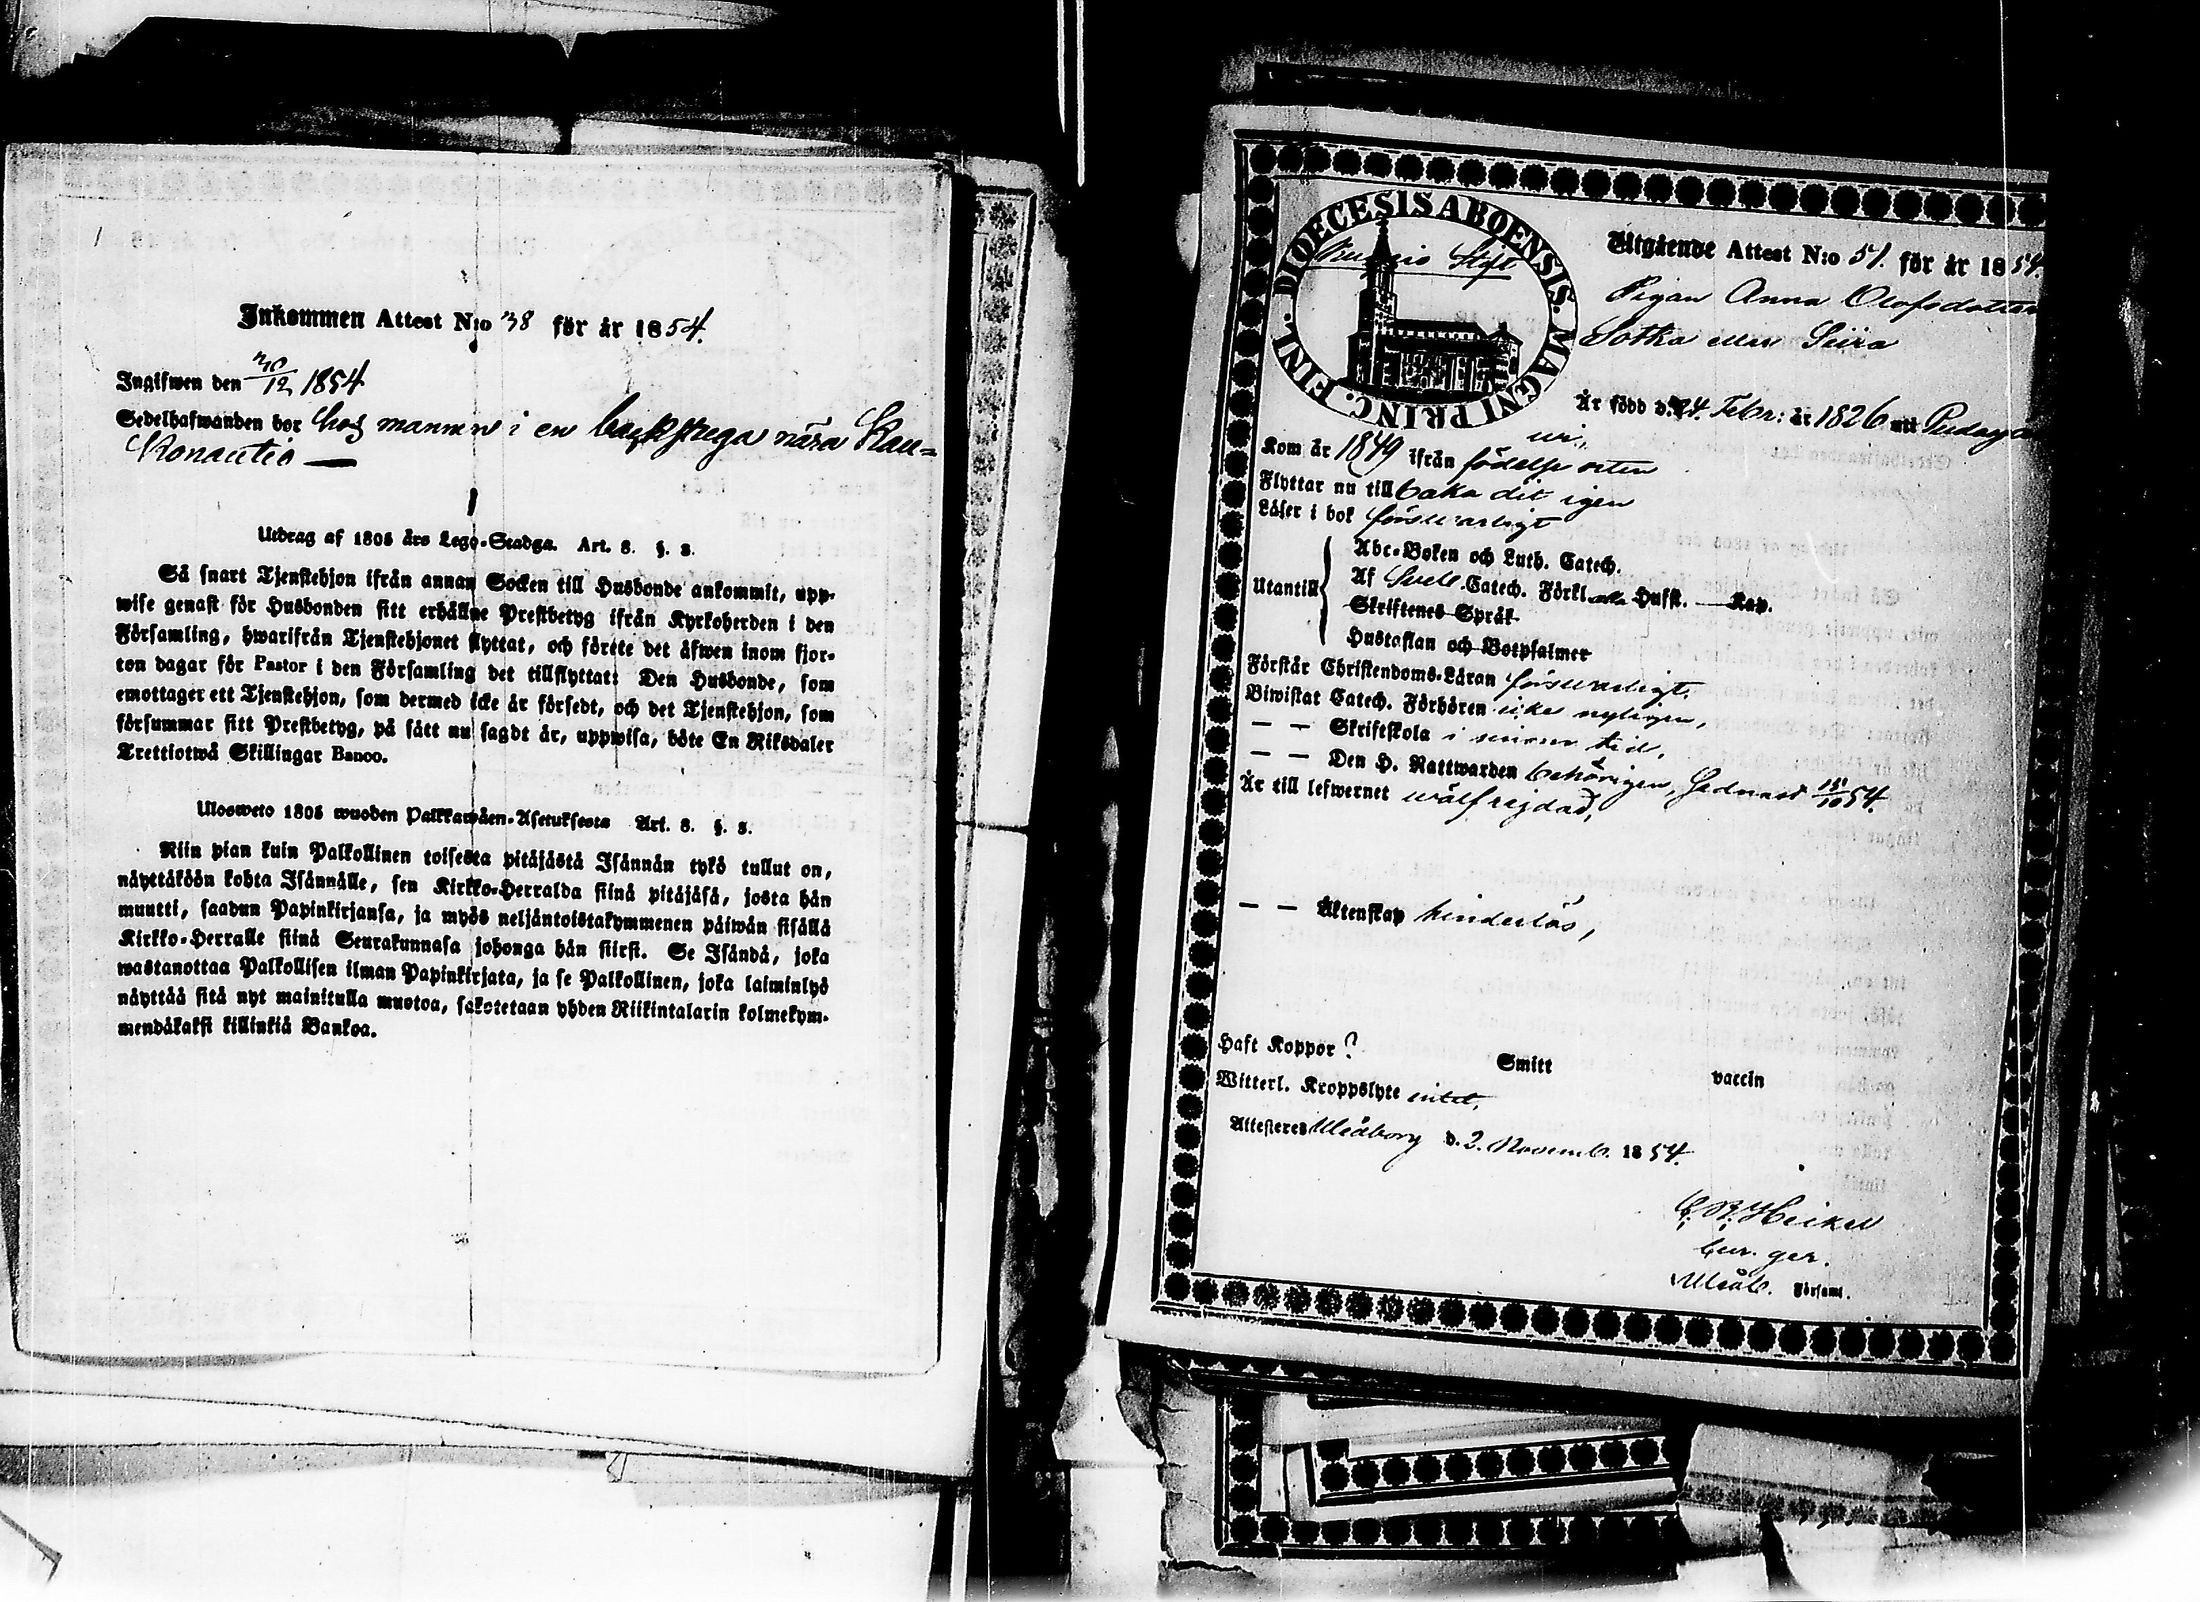 Inkommen Attest N:o 38 för år 1854.
Ingifwen den 20/12 1854
Sedelhafwanden bor hos mannen i en backstuga nära Kau=
Konautio —
Utdrag af 1805 års Lego-Stadga. Art. 8. §. 3.
Så snart Tjenstehjon ifrån annan Socken till Husbonde ankommit, upp-
wise genast för Husbonden sitt erhållne Prestbetyg ifrån Kyrkoherden i den
Församling, hwarifrån Tjenstehjonet flyttat, och förete det åfwen inom fjor-
ton dagar för Pastor i den Församling det tillflyttat: Den Husbonde, som
emottager ett Tjenstehjon, som dermed icke är försedt, och det Tjenstehjon, som
försummar sitt Prestbetyg, på sätt nu sagdt är, uppwisa, böte En Riksdaler
Trettiotwå Skillingar Banco.
Ulosweto 1805 wuoden Palkkawäen-Asetuksesta Art. 8. §. 3.
Niin pian kuin Palkollinen toisesta pitäjästä Isännän tykö tullut on,
näyttäköön kohta Isännälle, sen Kirkko-Herralda siinä pitäjäsä, josta hän
muutti, saadun Papinkirjansa, ja myös neljäntoistakymmenen päiwän sisällä
Kirkko-Herralle siinä Seurakunnasa johonga hän siirsi. Se Isändä, joka
wastanottaa Palkollisen ilman Papinkirjata, ja se Palkollinen, joka laiminlyö
näyttää sitä nyt mainitulla muotoa, sakotetaan yhden Riikintalarin kolmekym-
mendäkaksi killinkiä Bankoa.
DIOECESIS ABOENSIS. MAGNI PRINC. FINL.
Kuopio Stift
Utgående Attest N:o 51. för år 1854.
Pigan Anna Olofsdotter
Sotka Siira
Är född d. 24. Febr: år 1826 uti Pudasjä
Kom år 1849 ifrån födelse orten
Flyttar nu till baka dit igen
Läser i bok försvarligt
Utantill
Abc-Boken och Luth. Catech.
Af Sveb. Catech. Förkl. alla Hufst. — Kap.
Skriftenes Språk
Hustaflan och Botpsalmer
Förstår Christendoms-Läran försvarligt.
Biwistat Catech. Förhören icke nyligen,
— — Skriftskola i sinom tid,
— — Den H. Nattwarden behörigen, sednast 15/10 54.
Är till lefwernet wälfrejdad,
— — Äktenskap hinderlös,
Haft Koppor ? Smitt vaccin
Witterl. Kroppslyte intet,
Attesteres Uleåborg d. 2. Novemb. 1854.
C. R. Heikel
Cur. ger.
Uleåb. Församl.